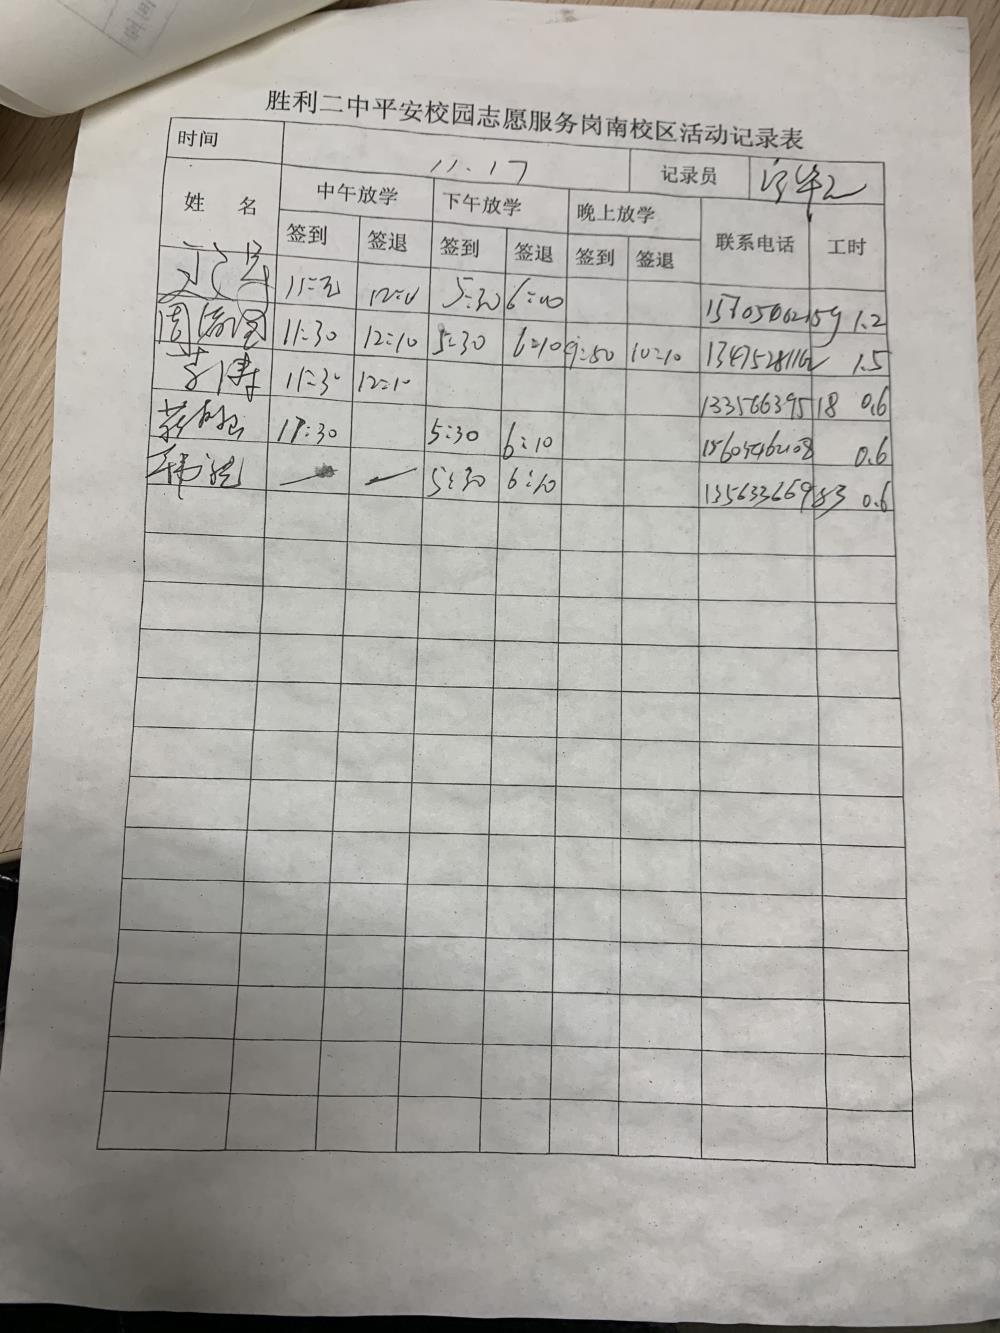 胜利二中平安校园志愿服务岗南校区活动记录表
时间 11.17 记录员
姓 名 中午放学 下午放学 晚上放学 联系电话 工时
签到 签退 签到 签退 签到 签退
5:30 6:10 1.2
周 11:30 12:10 5:30 6:10 9:50 10:10 1.5
李涛 11:30 12:10 13356639518 0.6
11:30 5:30 6:10 0.6
韩 5:30 6:10 13563366983 0.6